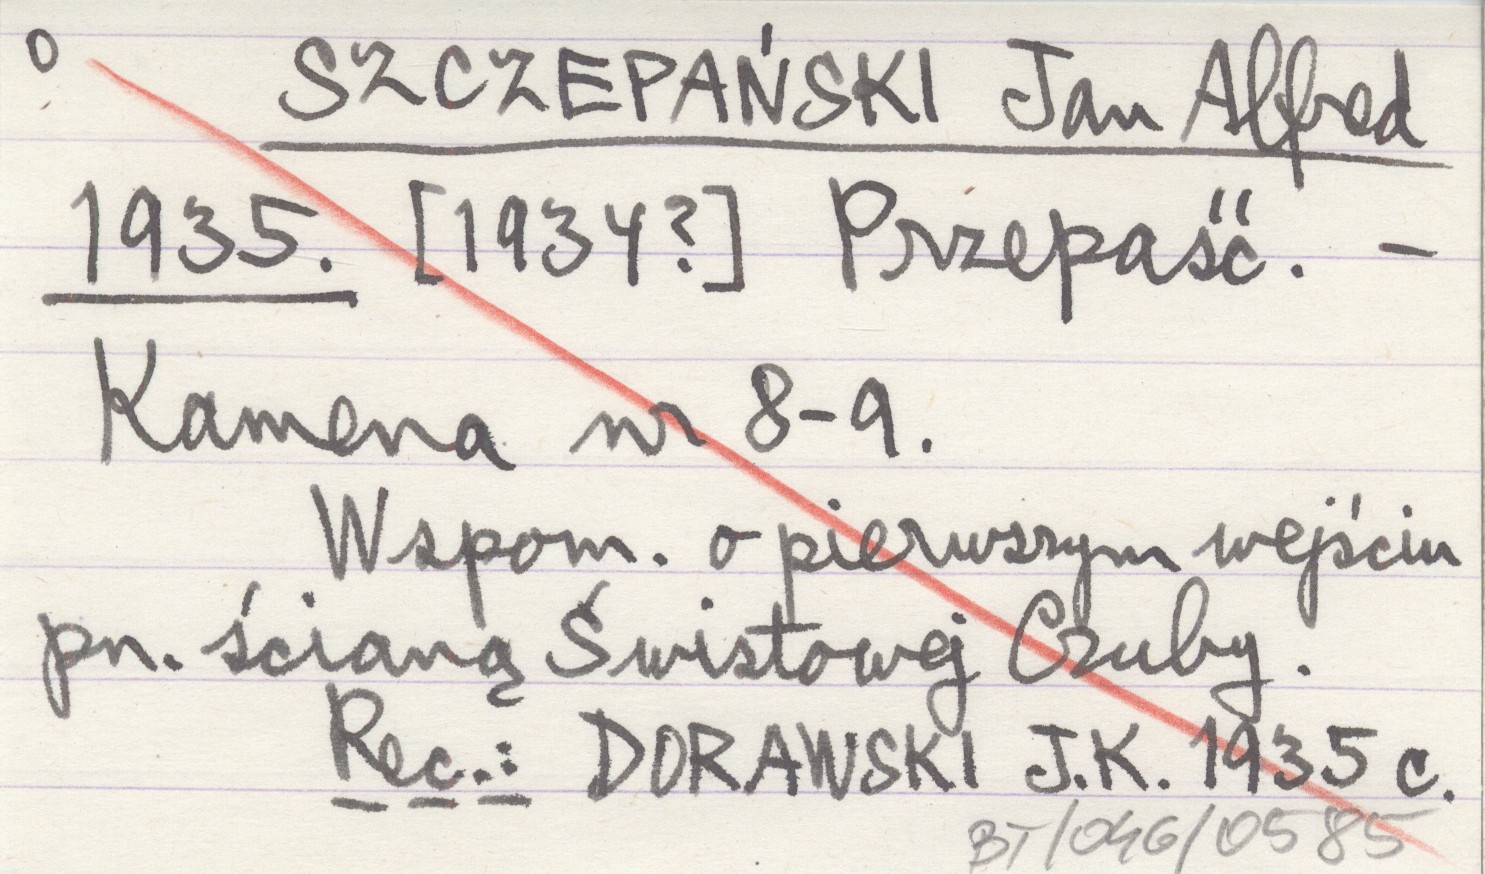 0 SZCZEPAŃSKI Jan Alfred
1935. [1934?] Przepaść. –
Kamena nr 8-9.
Wspom. o pierwszym wejściu
pn. ścianą Świstowej Czuby.
Rec.: DORAWSKI J.K. 1935 c.
BT/046/0585